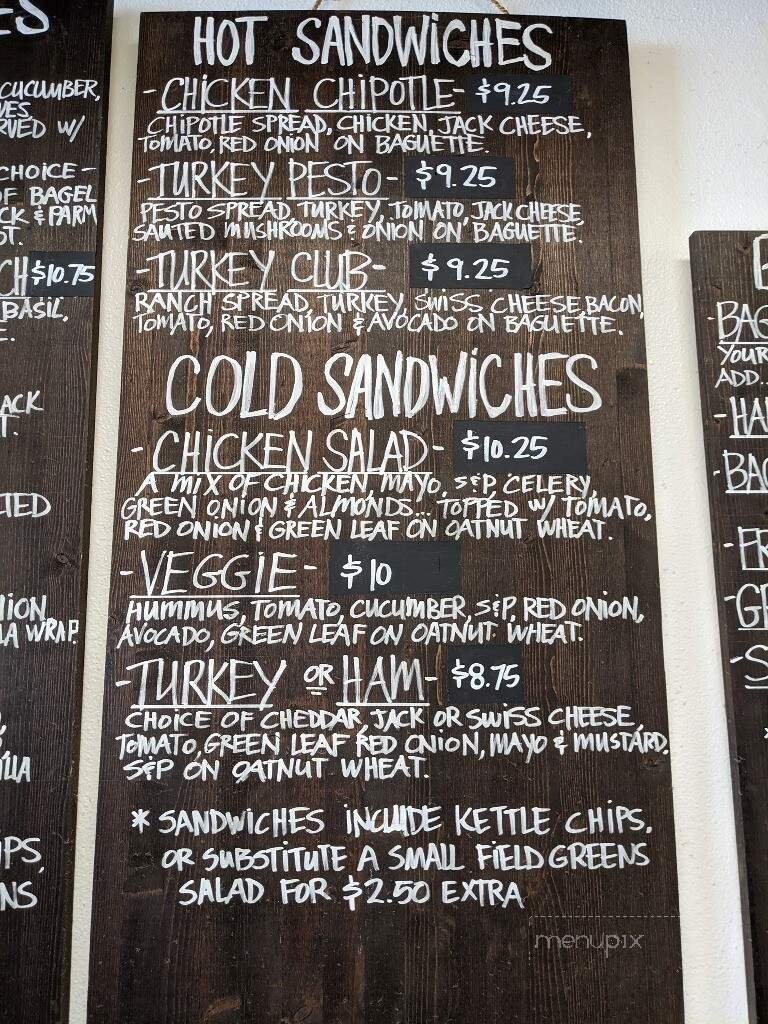 ES
CUCUMBER,
VES
RVED W/
CHOICE-
OF BAGEL
CK & PARM
ST.
CH $10.75
BASIL,
E.
ACK
T.
TED
NION
LA WRAP.
LLA
IPS,
NS
HOT SANDWICHES
-CHICKEN CHIPOTLE- $9.25
CHIPOTLE SPREAD, CHICKEN, JACK CHEESE,
TOMATO, RED ONION ON BAGUETTE.
-TURKEY PESTO- $9.25
PESTO SPREAD, TURKEY, TOMATO, JACK CHEESE,
SAUTED MUSHROOMS & ONION ON BAGUETTE.
-TURKEY CLUB- $9.25
RANCH SPREAD, TURKEY, SWISS CHEESE, BACON,
TOMATO, RED ONION & AVOCADO ON BAGUETTE.
COLD SANDWICHES
-CHICKEN SALAD- $10.25
A MIX OF CHICKEN, MAYO, S&P, CELERY,
GREEN ONION & ALMONDS... TOPPED W/ TOMATO,
RED ONION & GREEN LEAF ON OATNUT WHEAT.
-VEGGIE- $10
HUMMUS, TOMATO, CUCUMBER, S&P, RED ONION,
AVOCADO, GREEN LEAF ON OATNUT WHEAT.
-TURKEY OR HAM- $8.75
CHOICE OF CHEDDAR, JACK OR SWISS CHEESE,
TOMATO, GREEN LEAF RED ONION, MAYO & MUSTARD.
S&P ON OATNUT WHEAT.
* SANDWICHES INCLUDE KETTLE CHIPS,
OR SUBSTITUTE A SMALL FIELD GREENS
SALAD FOR $2.50 EXTRA
menupix
-BAG
YOUR
ADD..
-HA
-BAC
-FR
-GR
-S